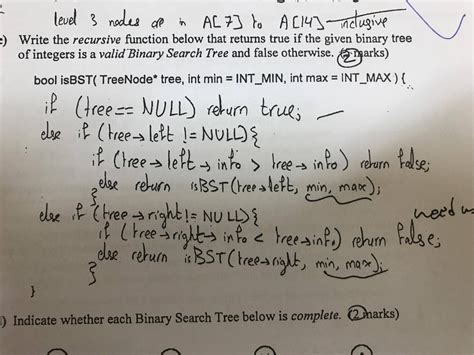 level 3 nodes are in A[7] to A[14] inclusive
e) Write the recursive function below that returns true if the given binary tree
of integers is a valid Binary Search Tree and false otherwise. (2 marks)
bool isBST( TreeNode* tree, int min = INT_MIN, int max = INT_MAX ) {
if (tree == NULL) return true;
else if (tree→left != NULL) {
if (tree→left→info > tree→info) return false;
else return isBST(tree→left, min, max);
}
else if (tree→right != NULL) {
need
if (tree→right→info < tree→info) return false;
else return isBST(tree→right, min, max);
}
}
) Indicate whether each Binary Search Tree below is complete. (2 marks)